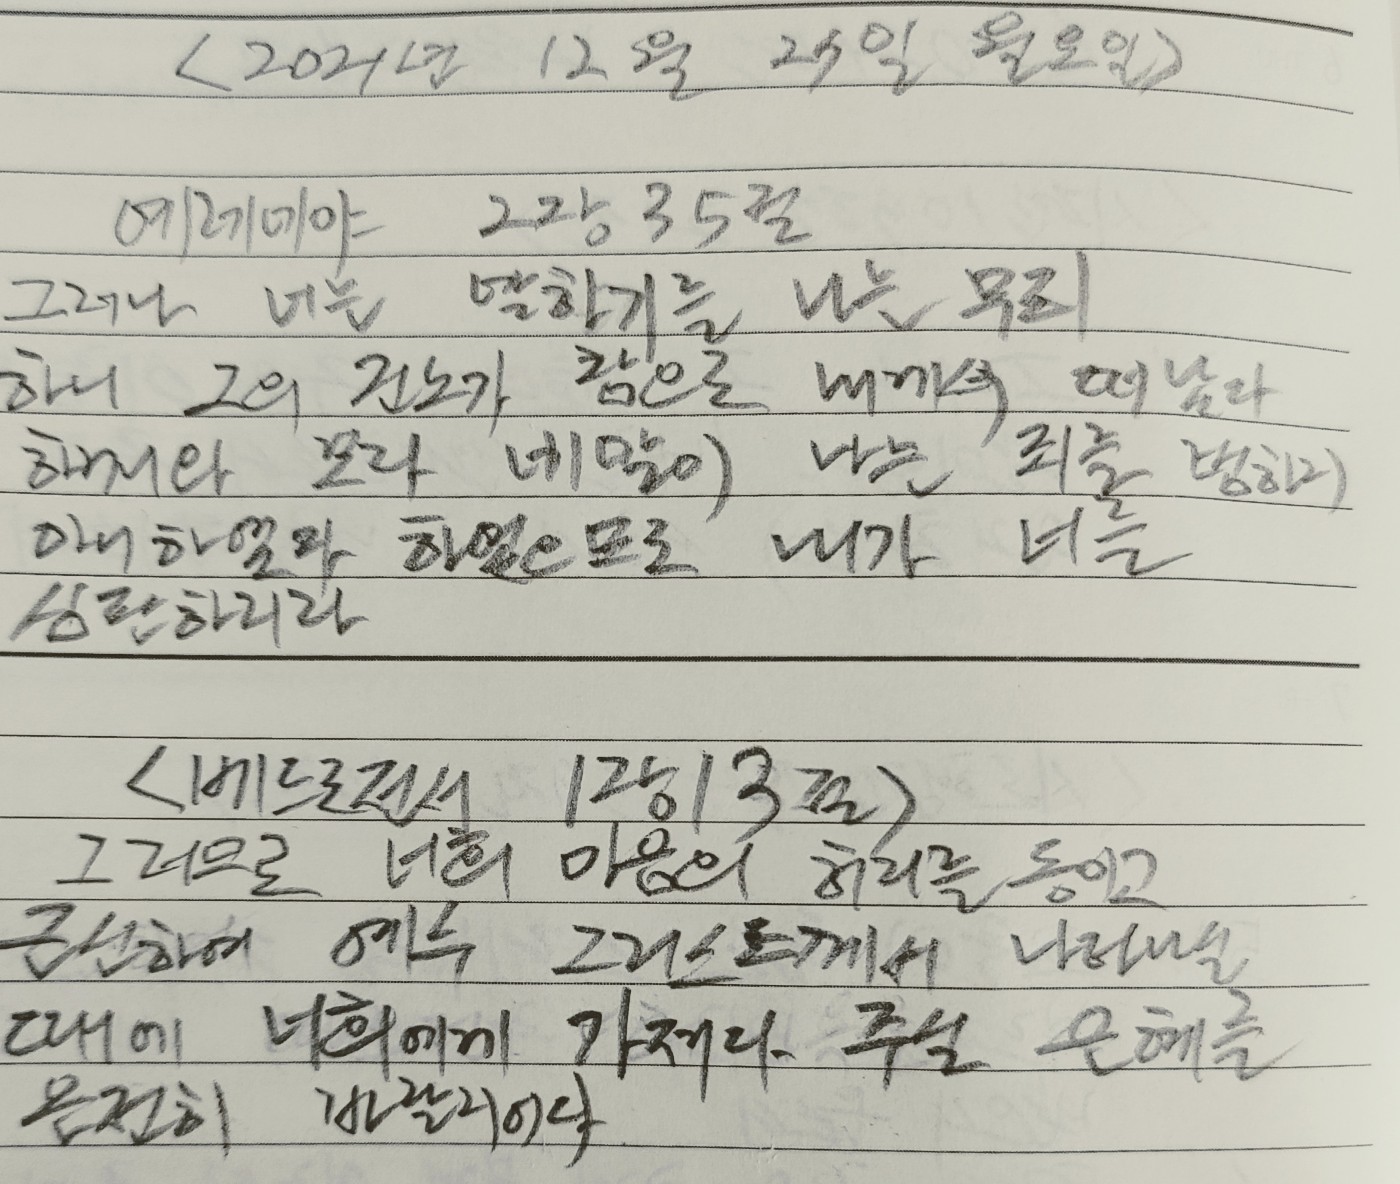 <2021년 12월 27일 월요일>
예레미야 2장 35절
그러나 너는 말하기를 나는 무죄
하니 그의 진노가 참으로 내게서 떠났다
하거니와 보라 네 말이 나는 죄를 범하지
아니하였다 하였으므로 내가 너를
심판하리라
<베드로전서 1장 13절>
그러므로 너희 마음의 허리를 동이고
근신하여 예수 그리스도께서 나타나실
때에 너희에게 가져다 주실 은혜를
온전히 바랄지어다